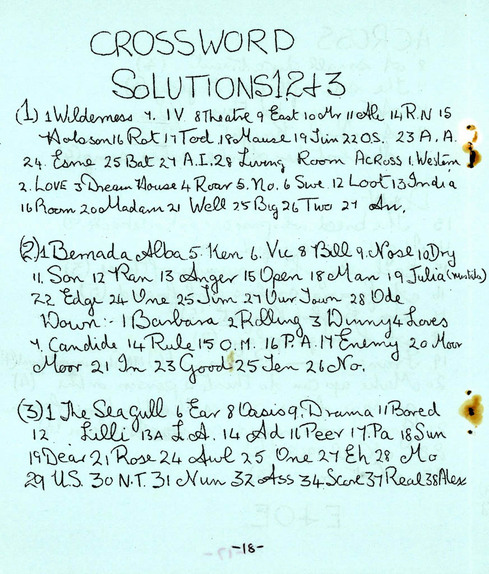 CROSSWORD
SOLUTIONS 1,2+3
(1) 1 Wilderness 7. IV 8 Theatre 9 East 10 Mr 11 Ah 14 R.N 15
Hobson 16 Rat 17 Tod 18 Mause 19 Jim 22 OS. 23 A.A.
24. Esme 25 Bat 27 A.I. 28 Living Room ACROSS 1. Western
2. LOVE 3 Dream House 4 Roar 5. No. 6 Swe 12 Loot 13 India
16 Room 20 Madam 21 Well 25 Big 26 Two 27 An.
(2) 1 Bernada Alba 5. Ken 6. Vic 8 Bill 9. Nose 10 Dry
11. Son 12 Ran 13 Anger 15 Open 18 Man 19 Julia
22 Edge 24 One 25 Jim 27 Our Town 28 Ode
Down :- 1 Barbara 2 Rolling 3 Dinny 4 Loves
7. Candide 14 Rule 15 O.M. 16 P.A. 17 Enemy 20 Moor
Moor 21 In 23 Good 25 Ten 26 No.
(3) 1 The Seagull 6 Ear 8 Oasis 9. Drama 11 Bored
12 Lilli 13A L.A. 14 Ad 16 Peer 17. Pa 18 Sun
19 Dear 21 Rose 24 Awl 25 One 27 Eh 28 Mo
29 U.S. 30 N.T. 31 Nun 32 Ass 34. Score 37 Real 38 Alex
-18-